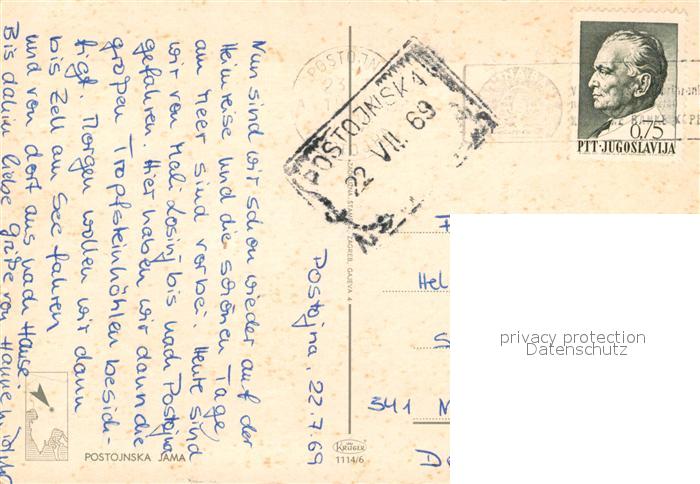 Postojna, 22.7.69
Nun sind wir schon wieder auf der
Heimreise und die schönen Tage
am Meer sind vorbei. Heute sind
wir von Mali Losinj bis nach Postojna
gefahren. Hier haben wir dann die
großen Tropfsteinhöhlen besich-
tigt. Morgen wollen wir dann
bis Zell am See fahren
und von dort aus nach Hause.
Bis dahin liebe Grüße von Hannemi
POSTOJNSKA JAMA
POSTOJNSKA
22 VII. 69
POSTOJN
ZAGREB, GAJEVA 4
KRÜGER
1114/6
0,75
PTT·JUGOSLAVIJA
Hel
341
privacy protection
Datenschutz